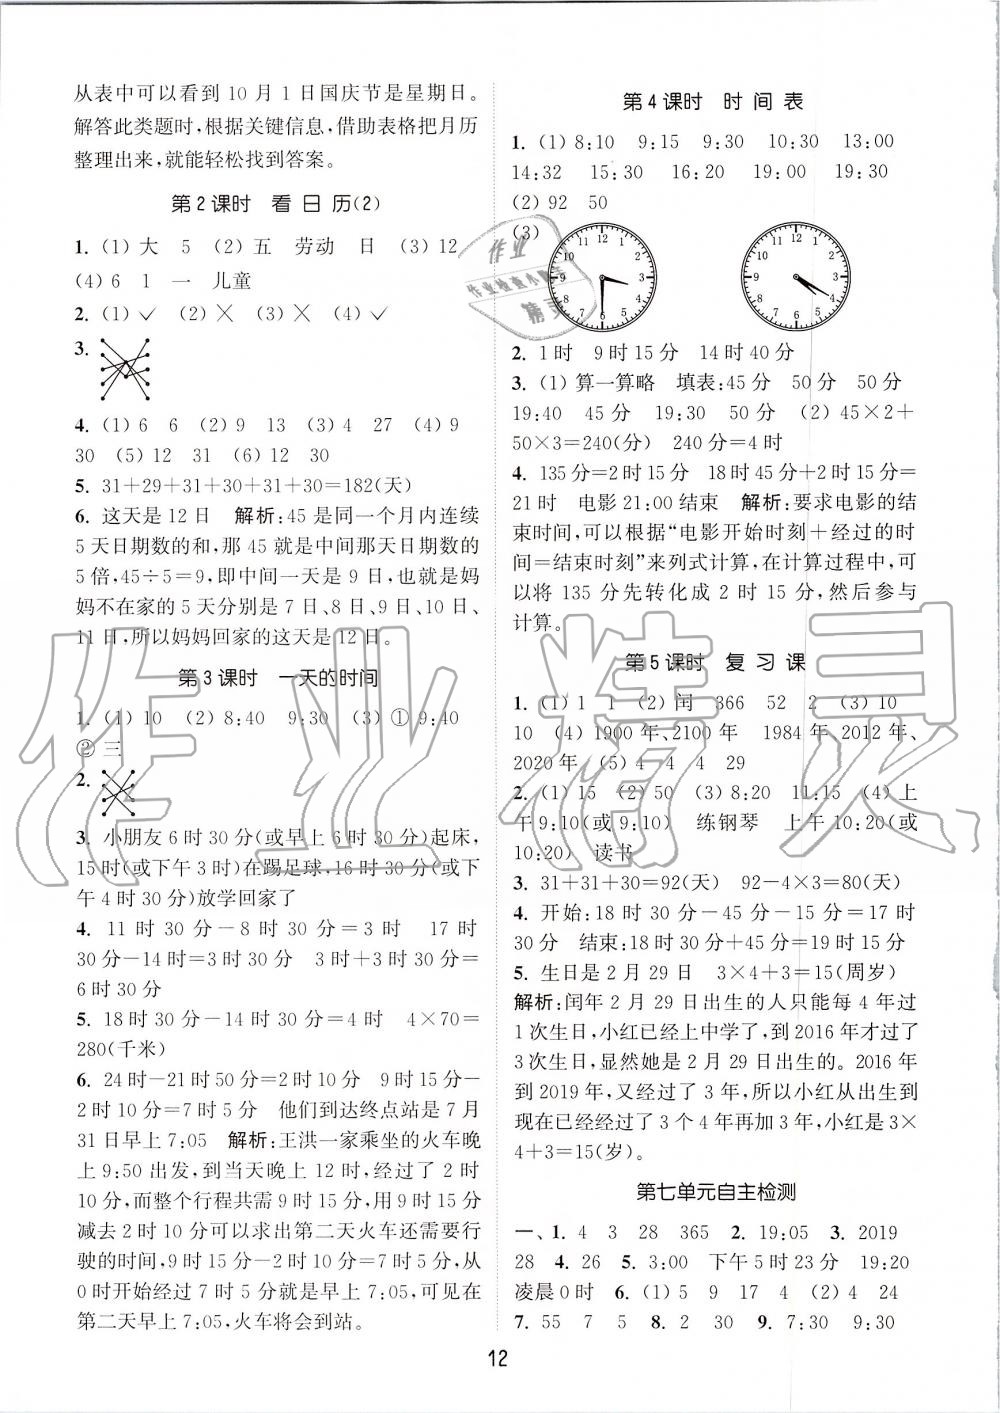 从表中可以看到 10 月 1 日国庆节是星期日。
解答此类题时,根据关键信息,借助表格把月历
整理出来,就能轻松找到答案。
第2课时 看日历(2)
1. (1) 大 5 (2) 五 劳动 日 (3) 12
(4) 6 1 一 儿童
2. (1) ✓ (2) ✕ (3) ✕ (4) ✓
3.
4. (1) 6 6 (2) 9 13 (3) 4 27 (4) 9
30 (5) 12 31 (6) 12 30
5. 31+29+31+30+31+30=182(天)
6. 这天是 12 日 解析:45 是同一个月内连续
5 天日期数的和,那 45 就是中间那天日期数的
5 倍,45÷5=9,即中间一天是 9 日,也就是妈
妈不在家的 5 天分别是 7 日、8 日、9 日、10 日、
11 日,所以妈妈回家的这天是 12 日。
第3课时 一天的时间
1. (1) 10 (2) 8:40 9:30 (3) ① 9:40
② 三
2.
3. 小朋友 6 时 30 分(或早上 6 时 30 分)起床,
15 时(或下午 3 时)在踢足球,16 时 30 分(或下
午 4 时 30 分)放学回家了
4. 11 时 30 分-8 时 30 分=3 时 17 时
30 分-14 时=3 时 30 分 3 时+3 时 30 分=
6 时 30 分
5. 18 时 30 分-14 时 30 分=4 时 4×70=
280(千米)
6. 24 时-21 时 50 分=2 时 10 分 9 时 15 分-
2 时 10 分=7 时 5 分 他们到达终点站是 7 月
31 日早上 7:05 解析:王洪一家乘坐的火车晚
上 9:50 出发,到当天晚上 12 时,经过了 2 时
10 分,而整个行程共需 9 时 15 分,用 9 时 15 分
减去 2 时 10 分可以求出第二天火车还需要行
驶的时间,9 时 15 分-2 时 10 分=7 时 5 分,从
0 时开始经过 7 时 5 分就是早上 7:05,可见在
第二天早上 7:05,火车将会到站。
第4课时 时间表
1. (1) 8:10 9:15 9:30 10:30 13:00
14:32 15:30 16:20 19:00 19:30
(2) 92 50
(3)
11 12 1 10 2 9 3 8 4 7 6 5
11 12 1 10 2 9 3 8 4 7 6 5
2. 1 时 9 时 15 分 14 时 40 分
3. (1) 算一算略 填表:45 分 50 分 50 分
19:40 45 分 19:30 50 分 (2) 45×2+
50×3=240(分) 240 分=4 时
4. 135 分=2 时 15 分 18 时 45 分+2 时 15 分=
21 时 电影 21:00 结束 解析:要求电影的结
束时间,可以根据“电影开始时刻+经过的时
间=结束时刻”来列式计算,在计算过程中,可
以将 135 分先转化成 2 时 15 分,然后参与
计算。
第5课时 复习课
1. (1) 1 1 (2) 闰 366 52 2 (3) 10
10 (4) 1900 年、2100 年 1984 年、2012 年、
2020 年 (5) 4 4 4 29
2. (1) 15 (2) 50 (3) 8:20 11:15 (4) 上
午 9:10(或 9:10) 练钢琴 上午 10:20(或
10:20) 读书
3. 31+31+30=92(天) 92-4×3=80(天)
4. 开始:18 时 30 分-45 分-15 分=17 时
30 分 结束:18 时 30 分+45 分=19 时 15 分
5. 生日是 2 月 29 日 3×4+3=15(周岁)
解析:闰年 2 月 29 日出生的人只能每 4 年过
1 次生日,小红已经上中学了,到 2016 年才过了
3 次生日,显然她是 2 月 29 日出生的。2016 年
到 2019 年,又经过了 3 年,所以小红从出生到
现在已经经过了 3 个 4 年再加 3 年,小红是 3×
4+3=15(岁)。
第七单元自主检测
一、1. 4 3 28 365 2. 19:05 3. 2019
28 4. 26 5. 3:00 下午 5 时 23 分 19:20
凌晨 0 时 6. (1) 5 9 17 4 (2) 4 24
7. 55 7 5 8. 2 50 9. 7:30 9:30
12
作业精灵
作业
作业检查小助手
精灵